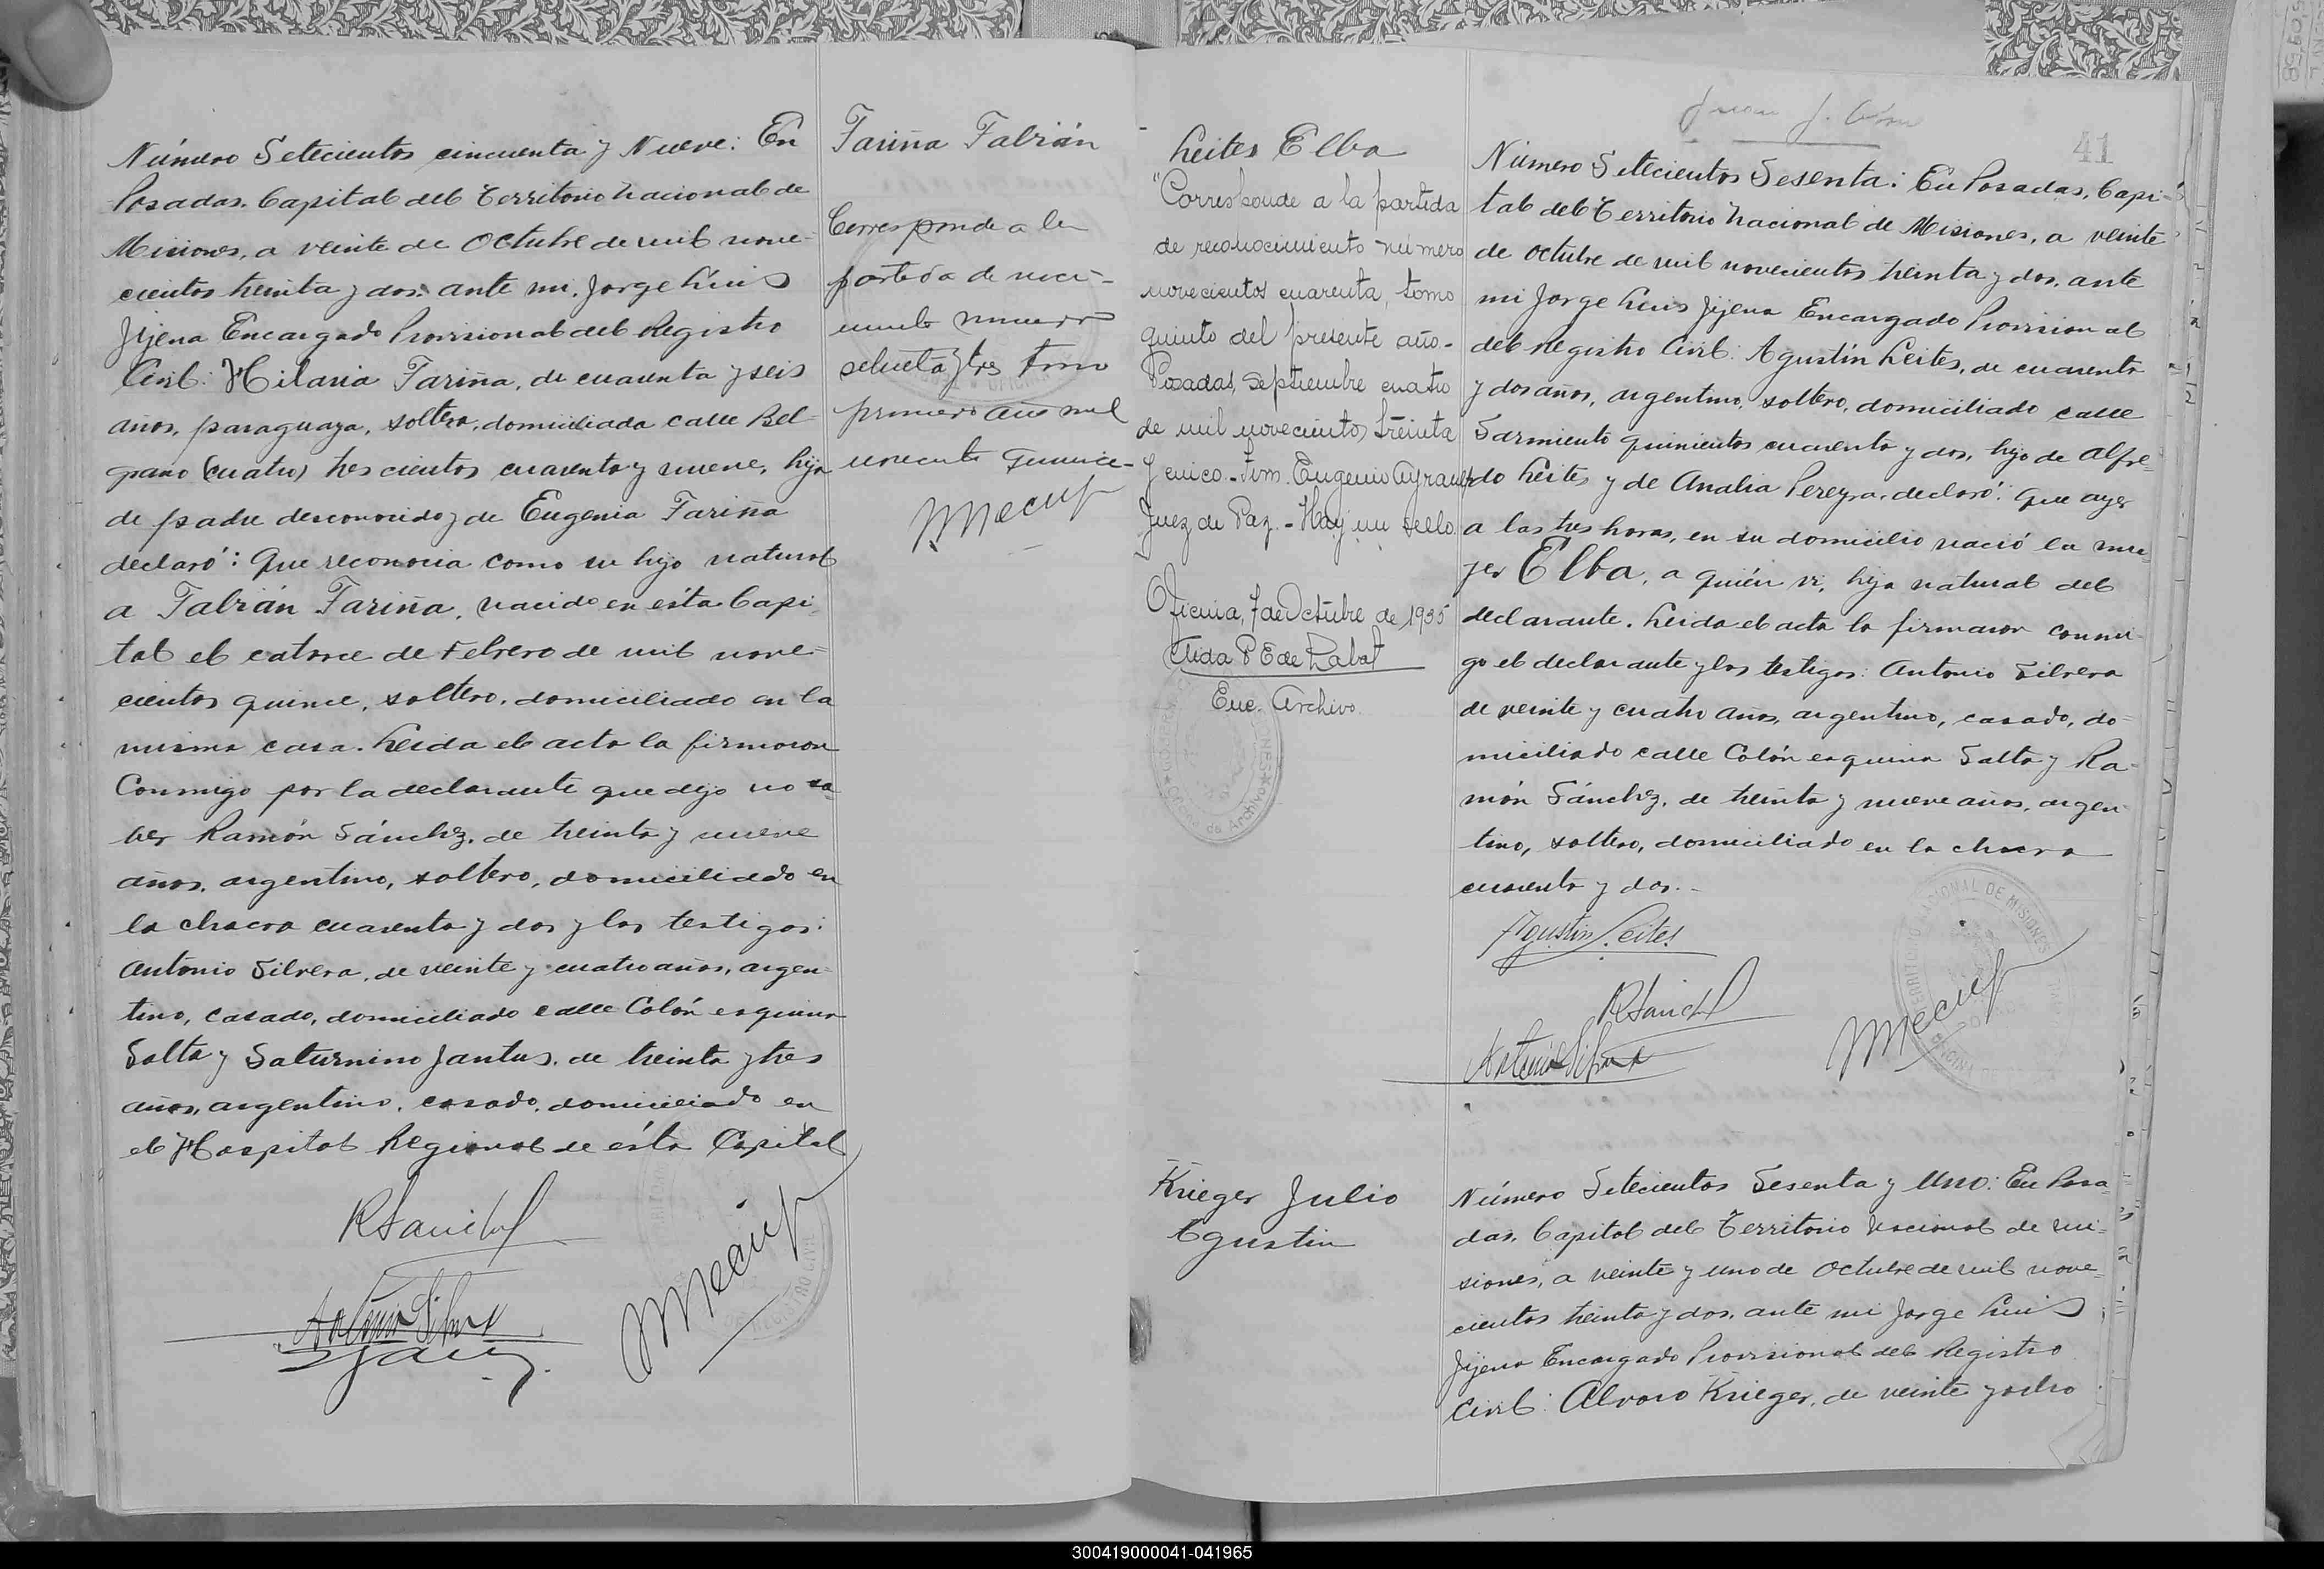 Número Setecientos cincuenta y Nueve: En
Posadas. Capital del Territorio Nacional de
Misiones, a veinte de Octubre de mil nove-
cientos treinta y dos. ante mi. Jorge Luis
Jijena Encargado Provisional del Registro
Civil: Hilaria Fariña, de cuarenta y seis
años, paraguaya, soltera, domiciliada calle Bel-
grano (cuatro) tres cientos cuarenta y nueve, hija
de padre desconocido y de Eugenia Fariña
declaró: Que reconocia como su hijo natural
a Fabián Fariña, nacido en ésta Capi-
tal el catorce de Febrero de mil nove-
cientos quince, soltero, domiciliado en la
misma casa. Leida el acta la firmaron
Conmigo por la declarante que dijo no sa-
ber Ramón Sánchez, de treinta y nueve
años, argentino, soltero, domiciliado en
la chacra cuarenta y dos y los testigos:
Antonio Silvera, de veinte y cuatro años, argen-
tino, casado, domiciliado calle Colón esquina
Salta y Saturnino Jantus, de treinta y tres
años, argentino, casado, domiciliado en
el Hospital Regional de ésta Capital
RSanchez
Antonio Silvera
Fariña Fabián
Corresponde a la
partida de naci-
miento numero
setenta y tres tomo
primero año mil
novecientos quince-
Leites Elba
"Corresponde a la partida
de reconocimiento número
novecientos cuarenta, tomo
quinto del presente año-
Posadas, septiembre cuatro
de mil novecientos treinta
y cinco.- Firm. Eugenio
Juez de Paz.- Hay un sello
Oficina, 7 de Octubre de 1935
Elida P E de Labat
Enc. Archivo.
Oficina de Archivos
Juan J.
41
Número Setecientos Sesenta: En Posadas, Capi-
tal del Territorio Nacional de Misiones, a veinte
de octubre de mil novecientos treinta y dos, ante
mi Jorge Luis Jijena Encargado Provisional
del Registro Civil: Agustín Leites, de cuarenta
y dos años, argentino, soltero, domiciliado calle
Sarmiento quinientos cuarenta y dos, hijo de Alfre-
do Leites y de Analia Pereyra, declaró: Que ayer
a las tres horas, en su domicilio nació la mu-
jer Elba, a quién vi, hija natural del
declarante. Leida el acta la firmaron conmi-
go el declarante y los testigos: Antonio Silvera
de veinte y cuatro años, argentino, casado, do-
miciliado calle Colón esquina Salta y Ra-
món Sánchez, de treinta y nueve años, argen-
tino, soltero, domiciliado en la chacra
cuarenta y dos.-
Agustin Leites
RSanchez
Antonio Silvera
Krieger Julio
Agustin
Número Setecientos Sesenta y Uno: En Posa-
das, Capital del Territorio Nacional de Mi-
siones, a veinte y uno de Octubre de mil nove-
cientos treinta y dos, ante mi Jorge Luis
Jijena Encargado Provisional del Registro
Civil: Alvaro Krieger, de veinte y ocho
300419000041-041965